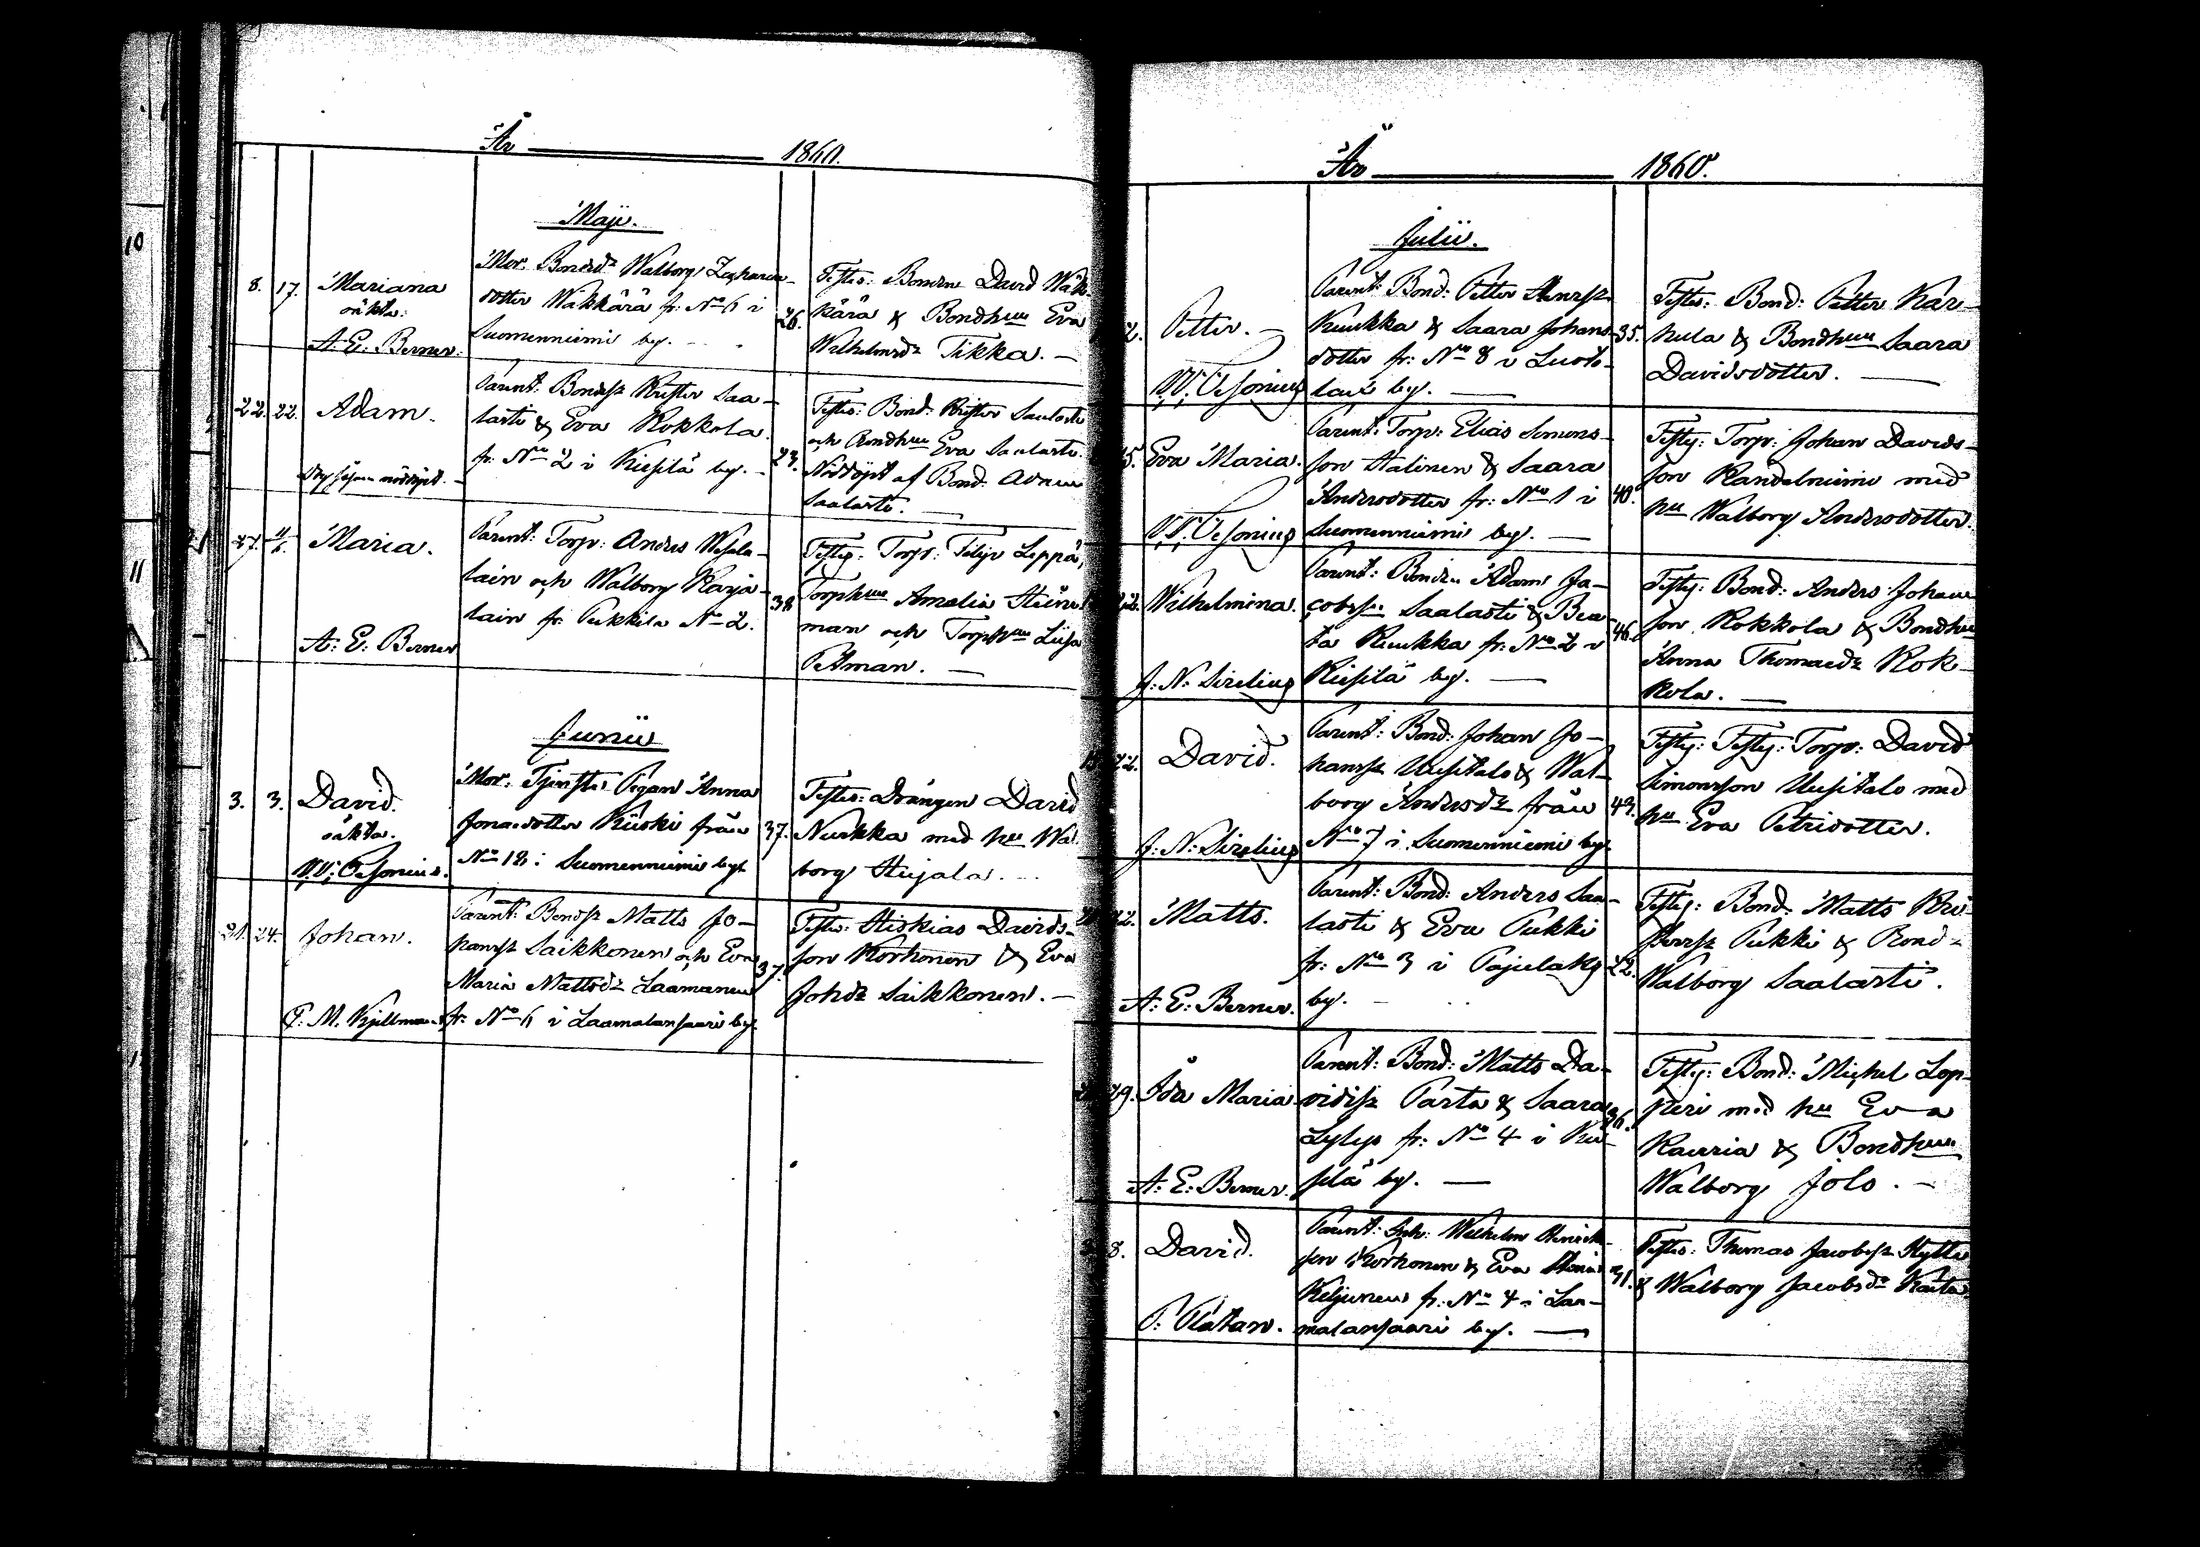 År 1860.
Maji.
8. 17. Mariana
oäkta.
A. E. Berner.
Mor. Bonded:r Walborg Zacharia-
dotter Wakkärä fr: No 6 i
Suomenniemi by.
26.
Testes: Bonden David Wäk-
kärä & Bondhun Eva
Wilhelmsd:r Tikka. —
22. 22. Adam.
nöddöpt.
Parent: Bondes: Krister Saa-
lasti & Eva Kokkola
fr. No 2 i Kiesilä by. -
23.
Testes: Bond: Krister Saalasti
och Bondhun Eva Saalasti.
Nöddöpt af Bond. Adam
Saalasti. —
27. Maria.
A. E. Berner
Parent: Torp: Anders Wesala-
lain och Walborg Karja-
lain fr. Pukkila No 2.
38
Testes: Torp: Filip Leppä,
Torphun Amalia
man och Torphun Liisa
Petman. —
Junii
3. 3. David.
oäkta.
V.V. Cesonius.
Mor. Tjenste Pigan Anna
Jonaedotter Kiiski från
No 18 i Suomenniemi by.
37.
Testes: Drängen David
Nurkka med hu Wal
borg Hujala.
21. 24. Johan.
P. M. Kjellman
Parent: Bonds: Matts Jo-
hanss: Saikkonen och Eva
Maria Mattsd:r Laamanen
fr. No 6 i Laamalansaari by.
37.
Testes: Hiskias Davids-
son Korhonen & Eva
Johsd:r Saikkonen. —
År 1860.
Julii.
2. Petter. —
V.V. Cesonius
Parent: Bond: Petter Henrss:
Kuukka & Saara Johans-
dotter fr: No 8 i Luoto-
lax by. —
35.
Testes: Bond: Petter Kär-
kula & Bondhun Saara
Davidsdotter. —
15. Eva Maria.
V.V. Cesonius
Parent: Torp: Elias Simons-
son Halinen & Saara
Andersdotter fr: No 1 i
Suomenniemi by. —
40.
Testes: Torp: Johan Davids-
son Kandelniemi med
hu Walborg Andersdotter.
22. Wilhelmina.
J. N. Sirelius
Parent: Bonden Adam Ja-
cobss: Saalasti & Bea-
ta Kuukka fr: No 2 i
Kiesilä by. —
46.
Testes: Bond: Anders Johans-
son Kokkola & Bondhu
Anna Thomaed:r Kok-
kola. —
22. David.
J. N. Sirelius
Parent: Bond: Johan Jo-
hanss: Uusitalo & Wal-
borg Andersd:r från
No 7 i Suomenniemi by.
43.
Testes: Testes: Torp: David
Simonsson Uusitalo med
hu Eva Petridotter.
22. Matts.
A. E. Berner.
Parent: Bond: Anders Saa-
lasti & Eva Pukki
fr: No 3 i Pajulaks
by.
22.
Testes: Bond: Matts Kri-
sterss: Pukki & Bond:
Walborg Saalasti.
29. Ida Maria
A. E. Berner.
Parent: Bond: Matts Da-
vidss: Parta & Saara
Lyly fr: No 4 i Kie-
silä by. —
36.
Testes: Bond: Michel Lop-
peri med hu Eva
Kauria & Bondhun
Walborg Jolo. —
8. David.
P. Platan.
Parent: Inh: Wilhelm Henrik-
son Korhonen & Eva
Kiljunen fr: No 4 i Laa-
malansaari by. —
31.
Testes: Thomas Jacobss: Hytti
& Walborg Jacobsd:r